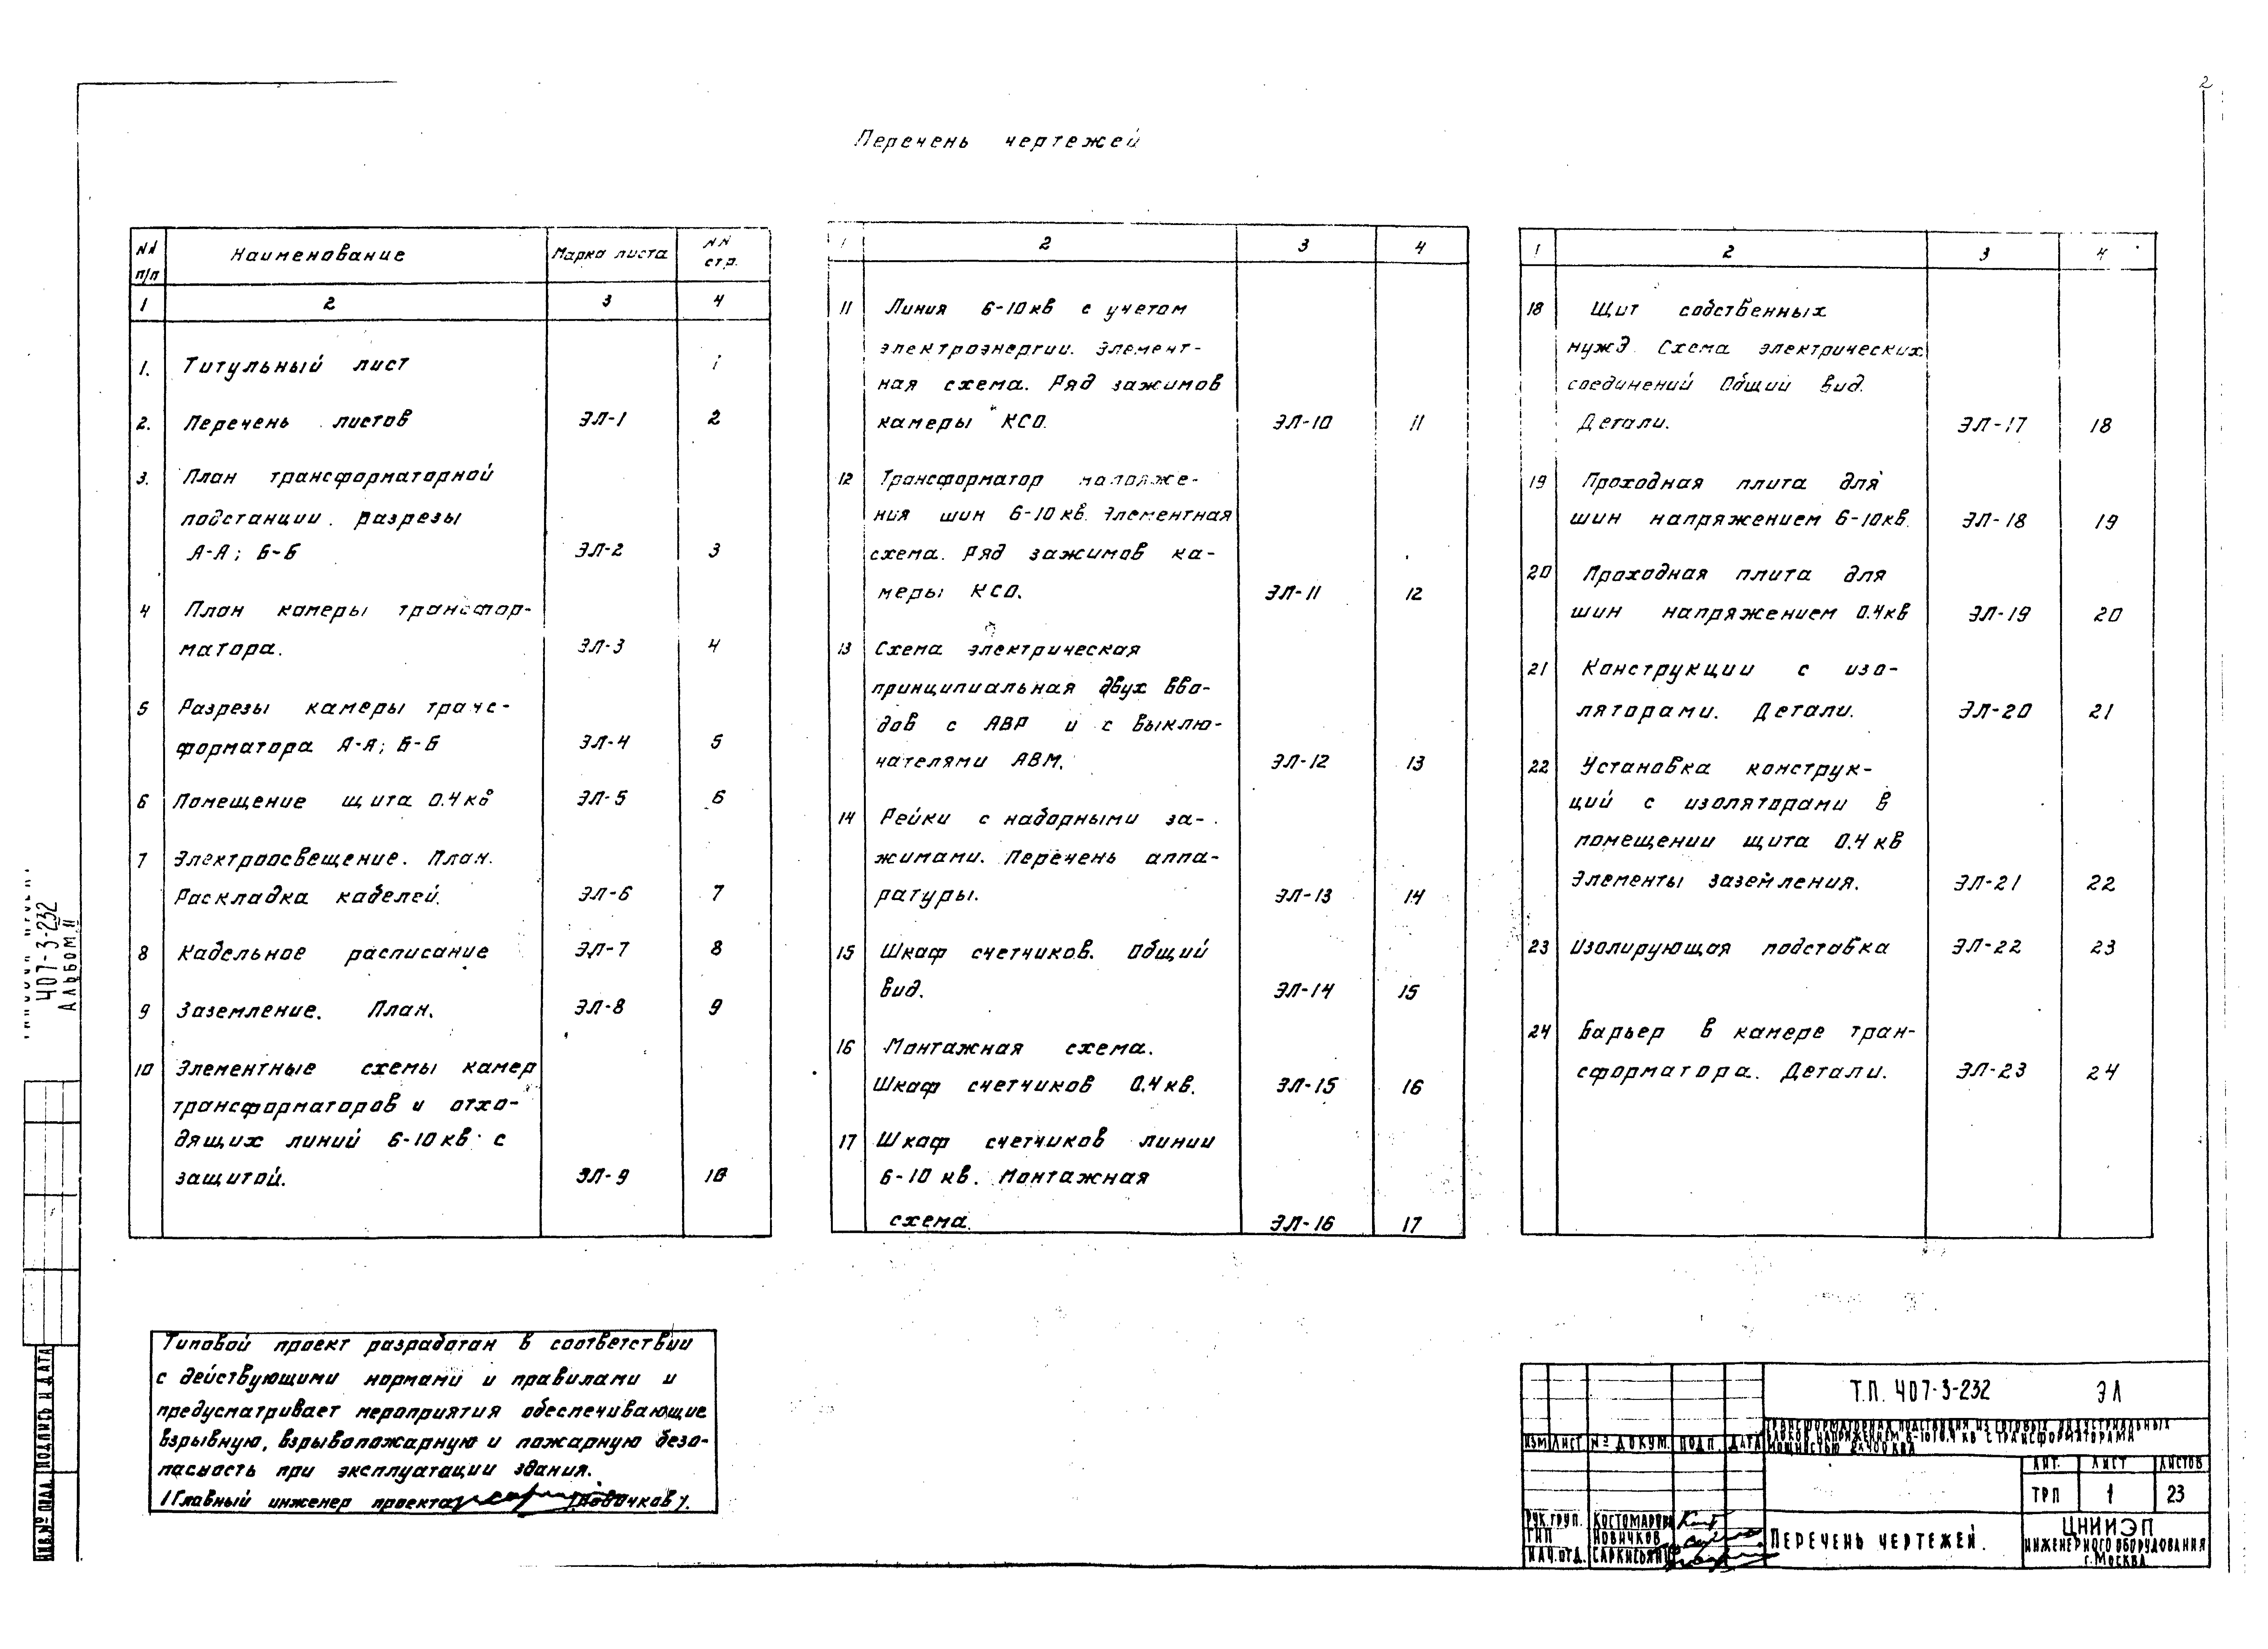 2
Перечень чертежей
NN п/п
Наименование
Марка листа
NN стр.
1 2 3 4
1. Титульный лист 1
2. Перечень листов ЭЛ-1 2
3. План трансформаторной
подстанции. разрезы
А-А; Б-Б ЭЛ-2 3
4 План камеры трансфор-
матора. ЭЛ-3 4
5 Разрезы камеры транс-
форматора А-А; Б-Б ЭЛ-4 5
6 Помещение щита 0.4кв ЭЛ-5 6
7 Электроосвещение. План.
Раскладка кабелей. ЭЛ-6 7
8 Кабельное расписание ЭЛ-7 8
9 Заземление. План. ЭЛ-8 9
10 Элементные схемы камер
трансформаторов и отхо-
дящих линий 6-10кв с
защитой. ЭЛ-9 10
1 2 3 4
11 Линия 6-10кв с учетом
электроэнергии. Элемент-
ная схема. Ряд зажимов
камеры КСО. ЭЛ-10 11
12 Трансформатор напряже-
ния шин 6-10кв. Элементная
схема. Ряд зажимов ка-
меры КСО. ЭЛ-11 12
13 Схема электрическая
принципиальная двух вво-
дов с АВР и с выклю-
чателями АВМ. ЭЛ-12 13
14 Рейки с наборными за-
жимами. Перечень аппа-
ратуры. ЭЛ-13 14
15 Шкаф счетчиков. Общий
вид. ЭЛ-14 15
16 Монтажная схема.
Шкаф счетчиков 0.4кв. ЭЛ-15 16
17 Шкаф счетчиков линии
6-10 кв. Монтажная
схема. ЭЛ-16 17
1 2 3 4
18 Щит собственных
нужд. Схема электрических
соединений Общий вид.
Детали. ЭЛ-17 18
19 Проходная плита для
шин напряжением 6-10кв. ЭЛ-18 19
20 Проходная плита для
шин напряжением 0.4кв ЭЛ-19 20
21 Конструкции с изо-
ляторами. Детали. ЭЛ-20 21
22 Установка конструк-
ций с изоляторами в
помещении щита 0.4кв
Элементы заземления. ЭЛ-21 22
23 Изолирующая подставка ЭЛ-22 23
24 Барьер в камере тран-
сформатора. Детали. ЭЛ-23 24
407-3-232
Альбом II
Подпись и дата
Инв.№ подл.
Типовой проект разработан в соответствии
с действующими нормами и правилами и
предусматривает мероприятия обеспечивающие
взрывную, взрывопожарную и пожарную безо-
пасность при эксплуатации здания.
Главный инженер проекта (Новичков).
Т.П. 407-3-232 ЭЛ
Трансформаторная подстанция из готовых индустриальных
блоков напряжением 6-10/0.4 кв с трансформаторами
мощностью 2х400 ква
Изм Лист № докум. Подп. Дата
Лит. Лист Листов
ТРП 1 23
Рук.груп. Костомаров
ГИП Новичков
Нач.отд. Саркисьян
Перечень чертежей.
ЦНИИЭП
инженерного оборудования
г. Москва